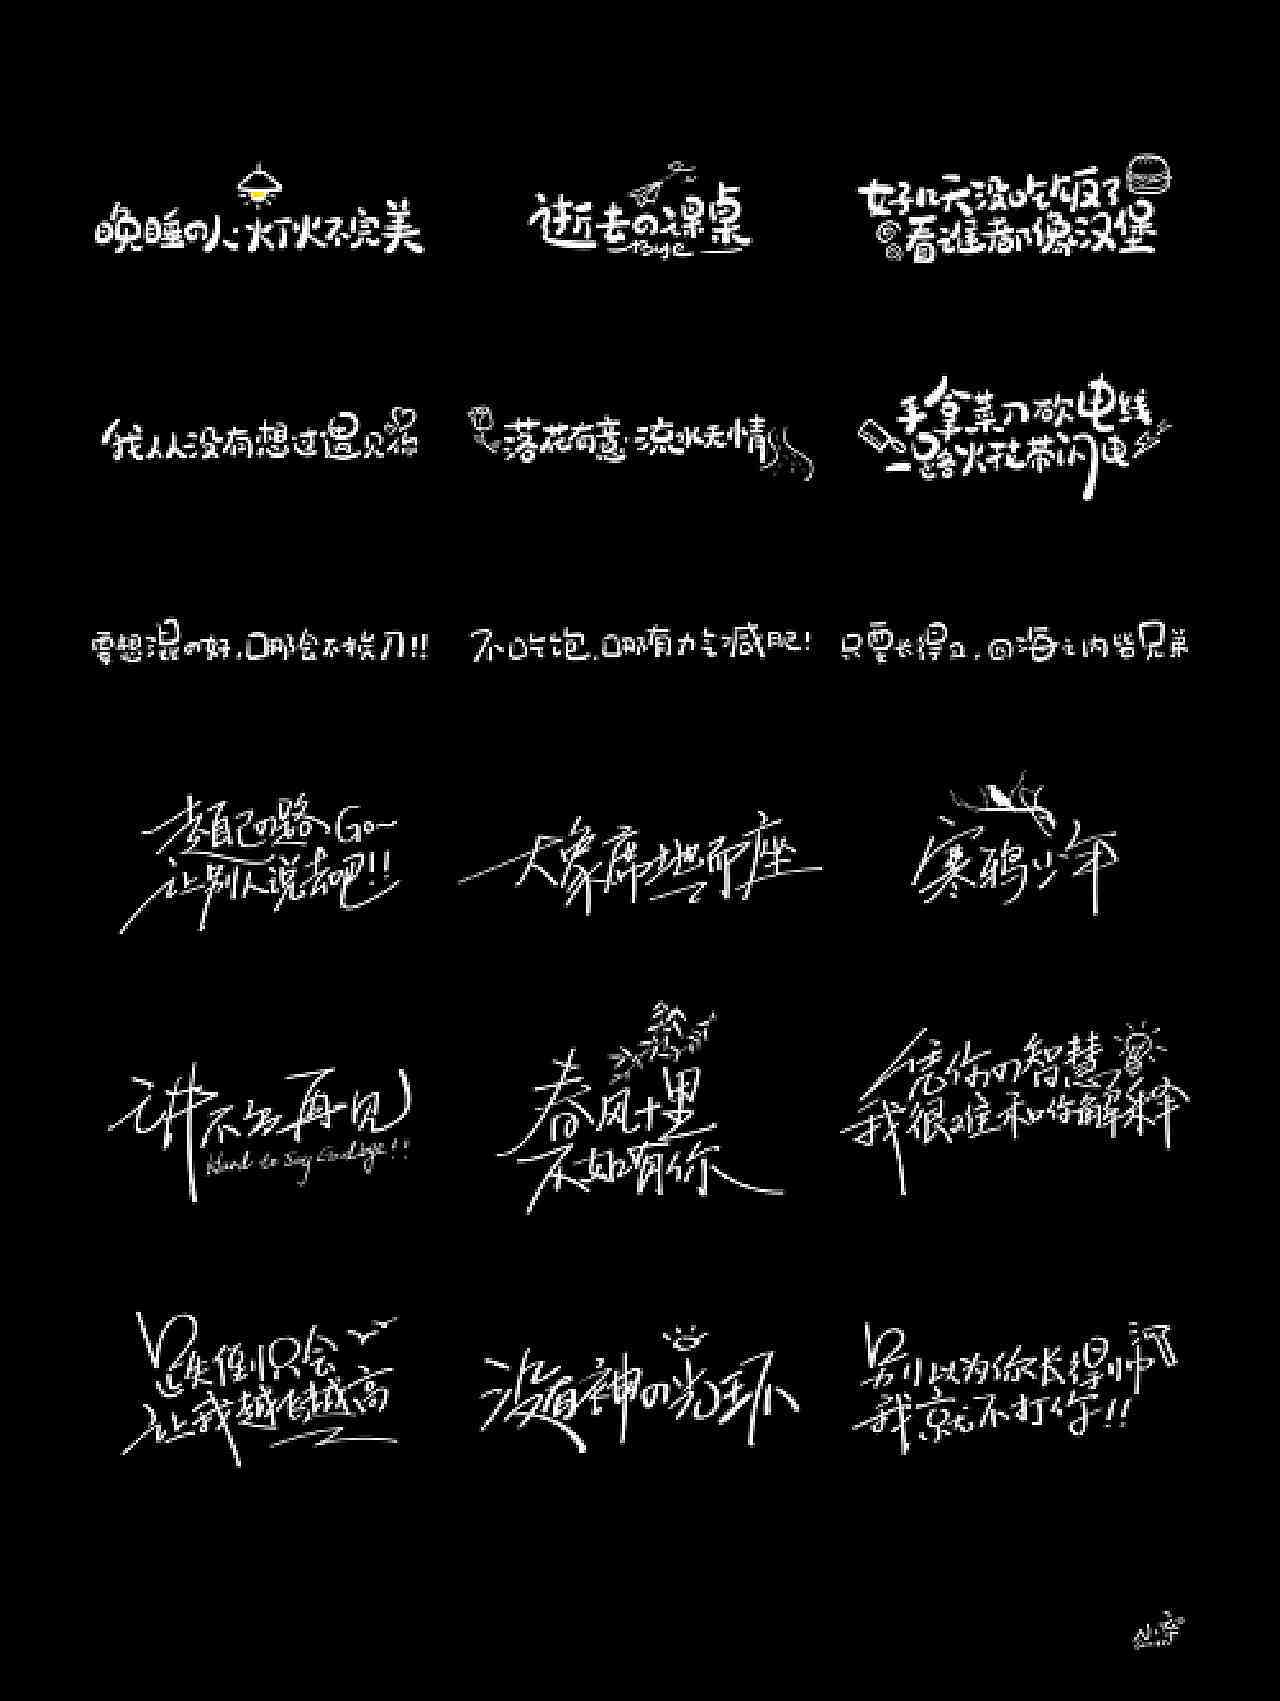 晚睡的人·灯火不完美
逝去の课桌
Page
好几天没吃饭了
看谁都像汉堡
我从没有想过遇见你
落花有意 流水无情
手拿菜刀砍电线
一路火花带闪电
要想混的好,哪会不挨刀!!
不吃饱,哪有力气减肥!
只要长得立,四海之内皆兄弟
走自己の路 Go
让别人说去吧!!
大象席地而座
寒鸦少年
讲不出再见
Hard to Say Goodbye!!
春风十里
不如有你
凭你の智慧
我很难和你解释
跌倒只会
让我越长越高
没有神の光环
别以为你长得帅
我就不打你!!